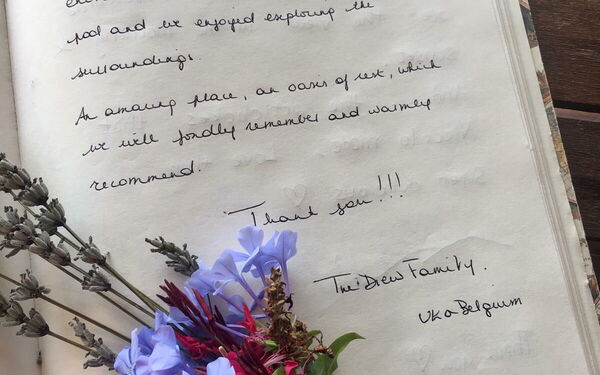 pool and we enjoyed exploring the
surroundings.
An amazing place, an oasis of rest, which
we will fondly remember and warmly
recommend.
Thank you!!!
The Drew Family.
UK & Belgium